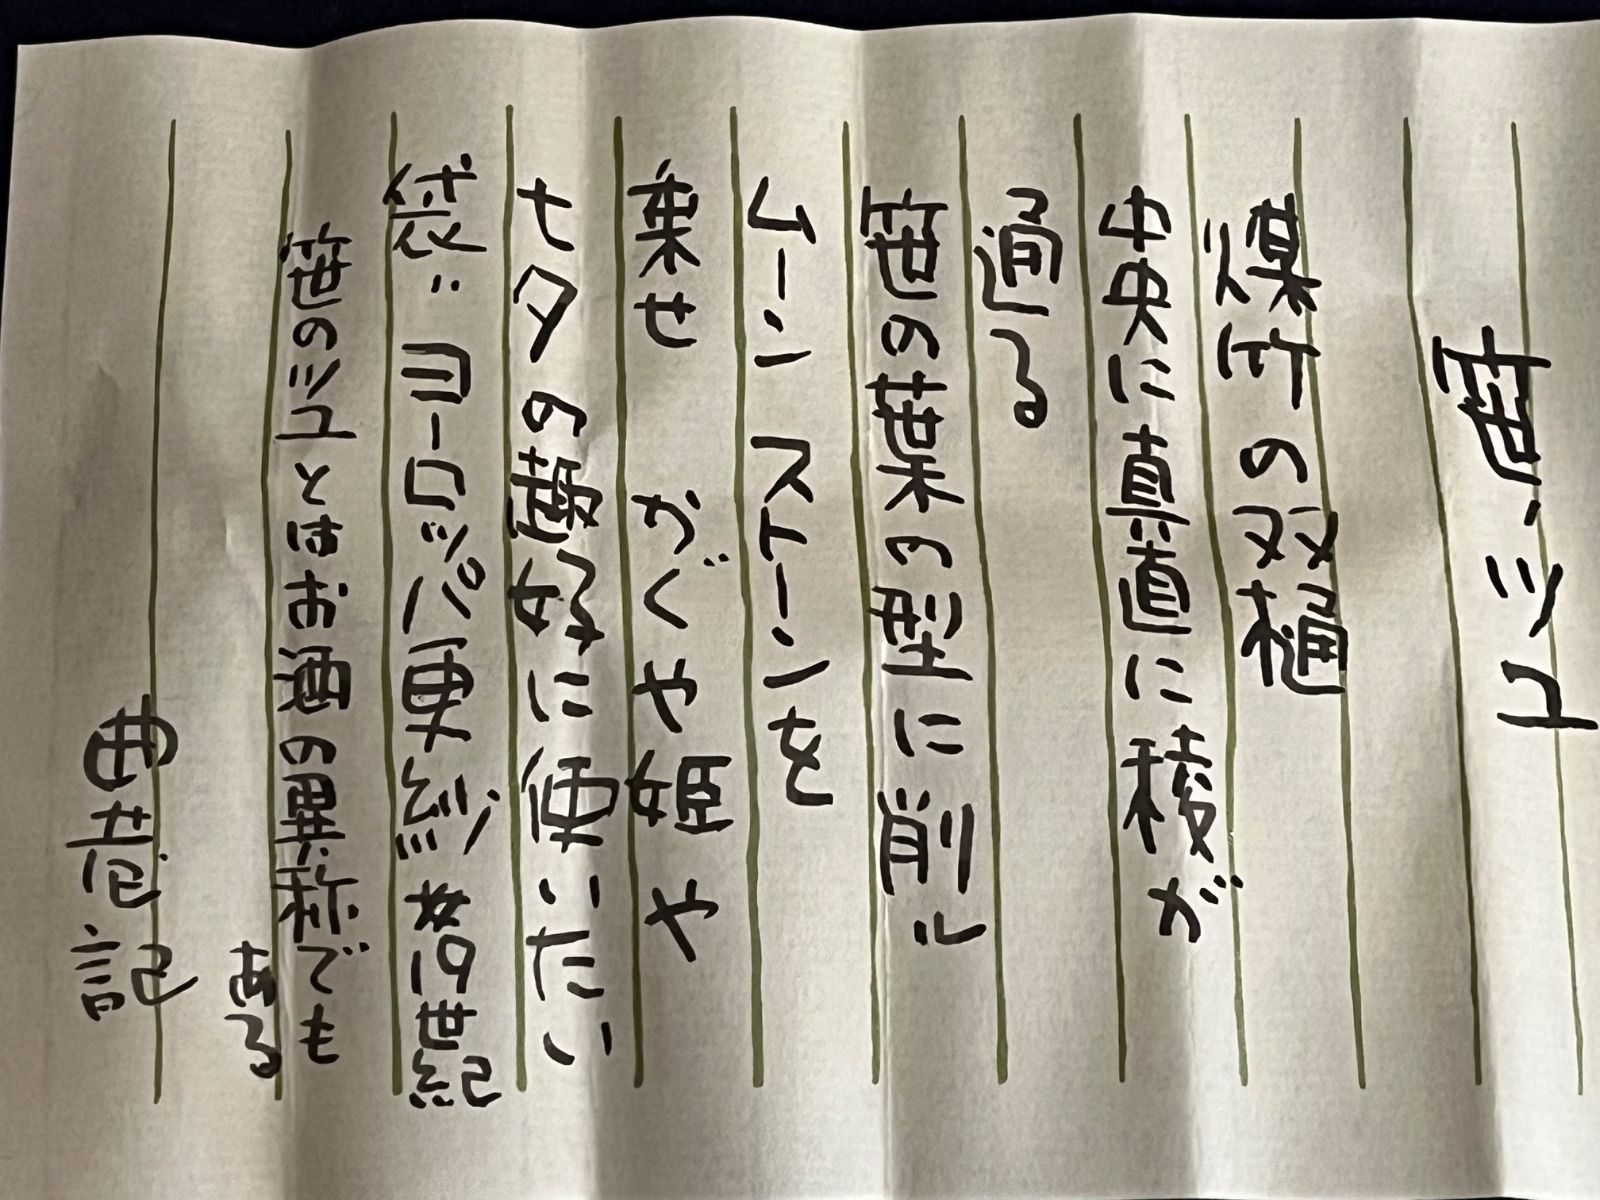 笹ノツユ
煤竹の双樋
中央に真直に稜が
通る
笹の葉の型に削ル
ムーンストーンを
乗せ かぐや姫や
七夕の趣好に使いたい
袋ハヨーロッパ更紗 19世紀
笹のツユとはお酒の異称でも
ある
曲巷記